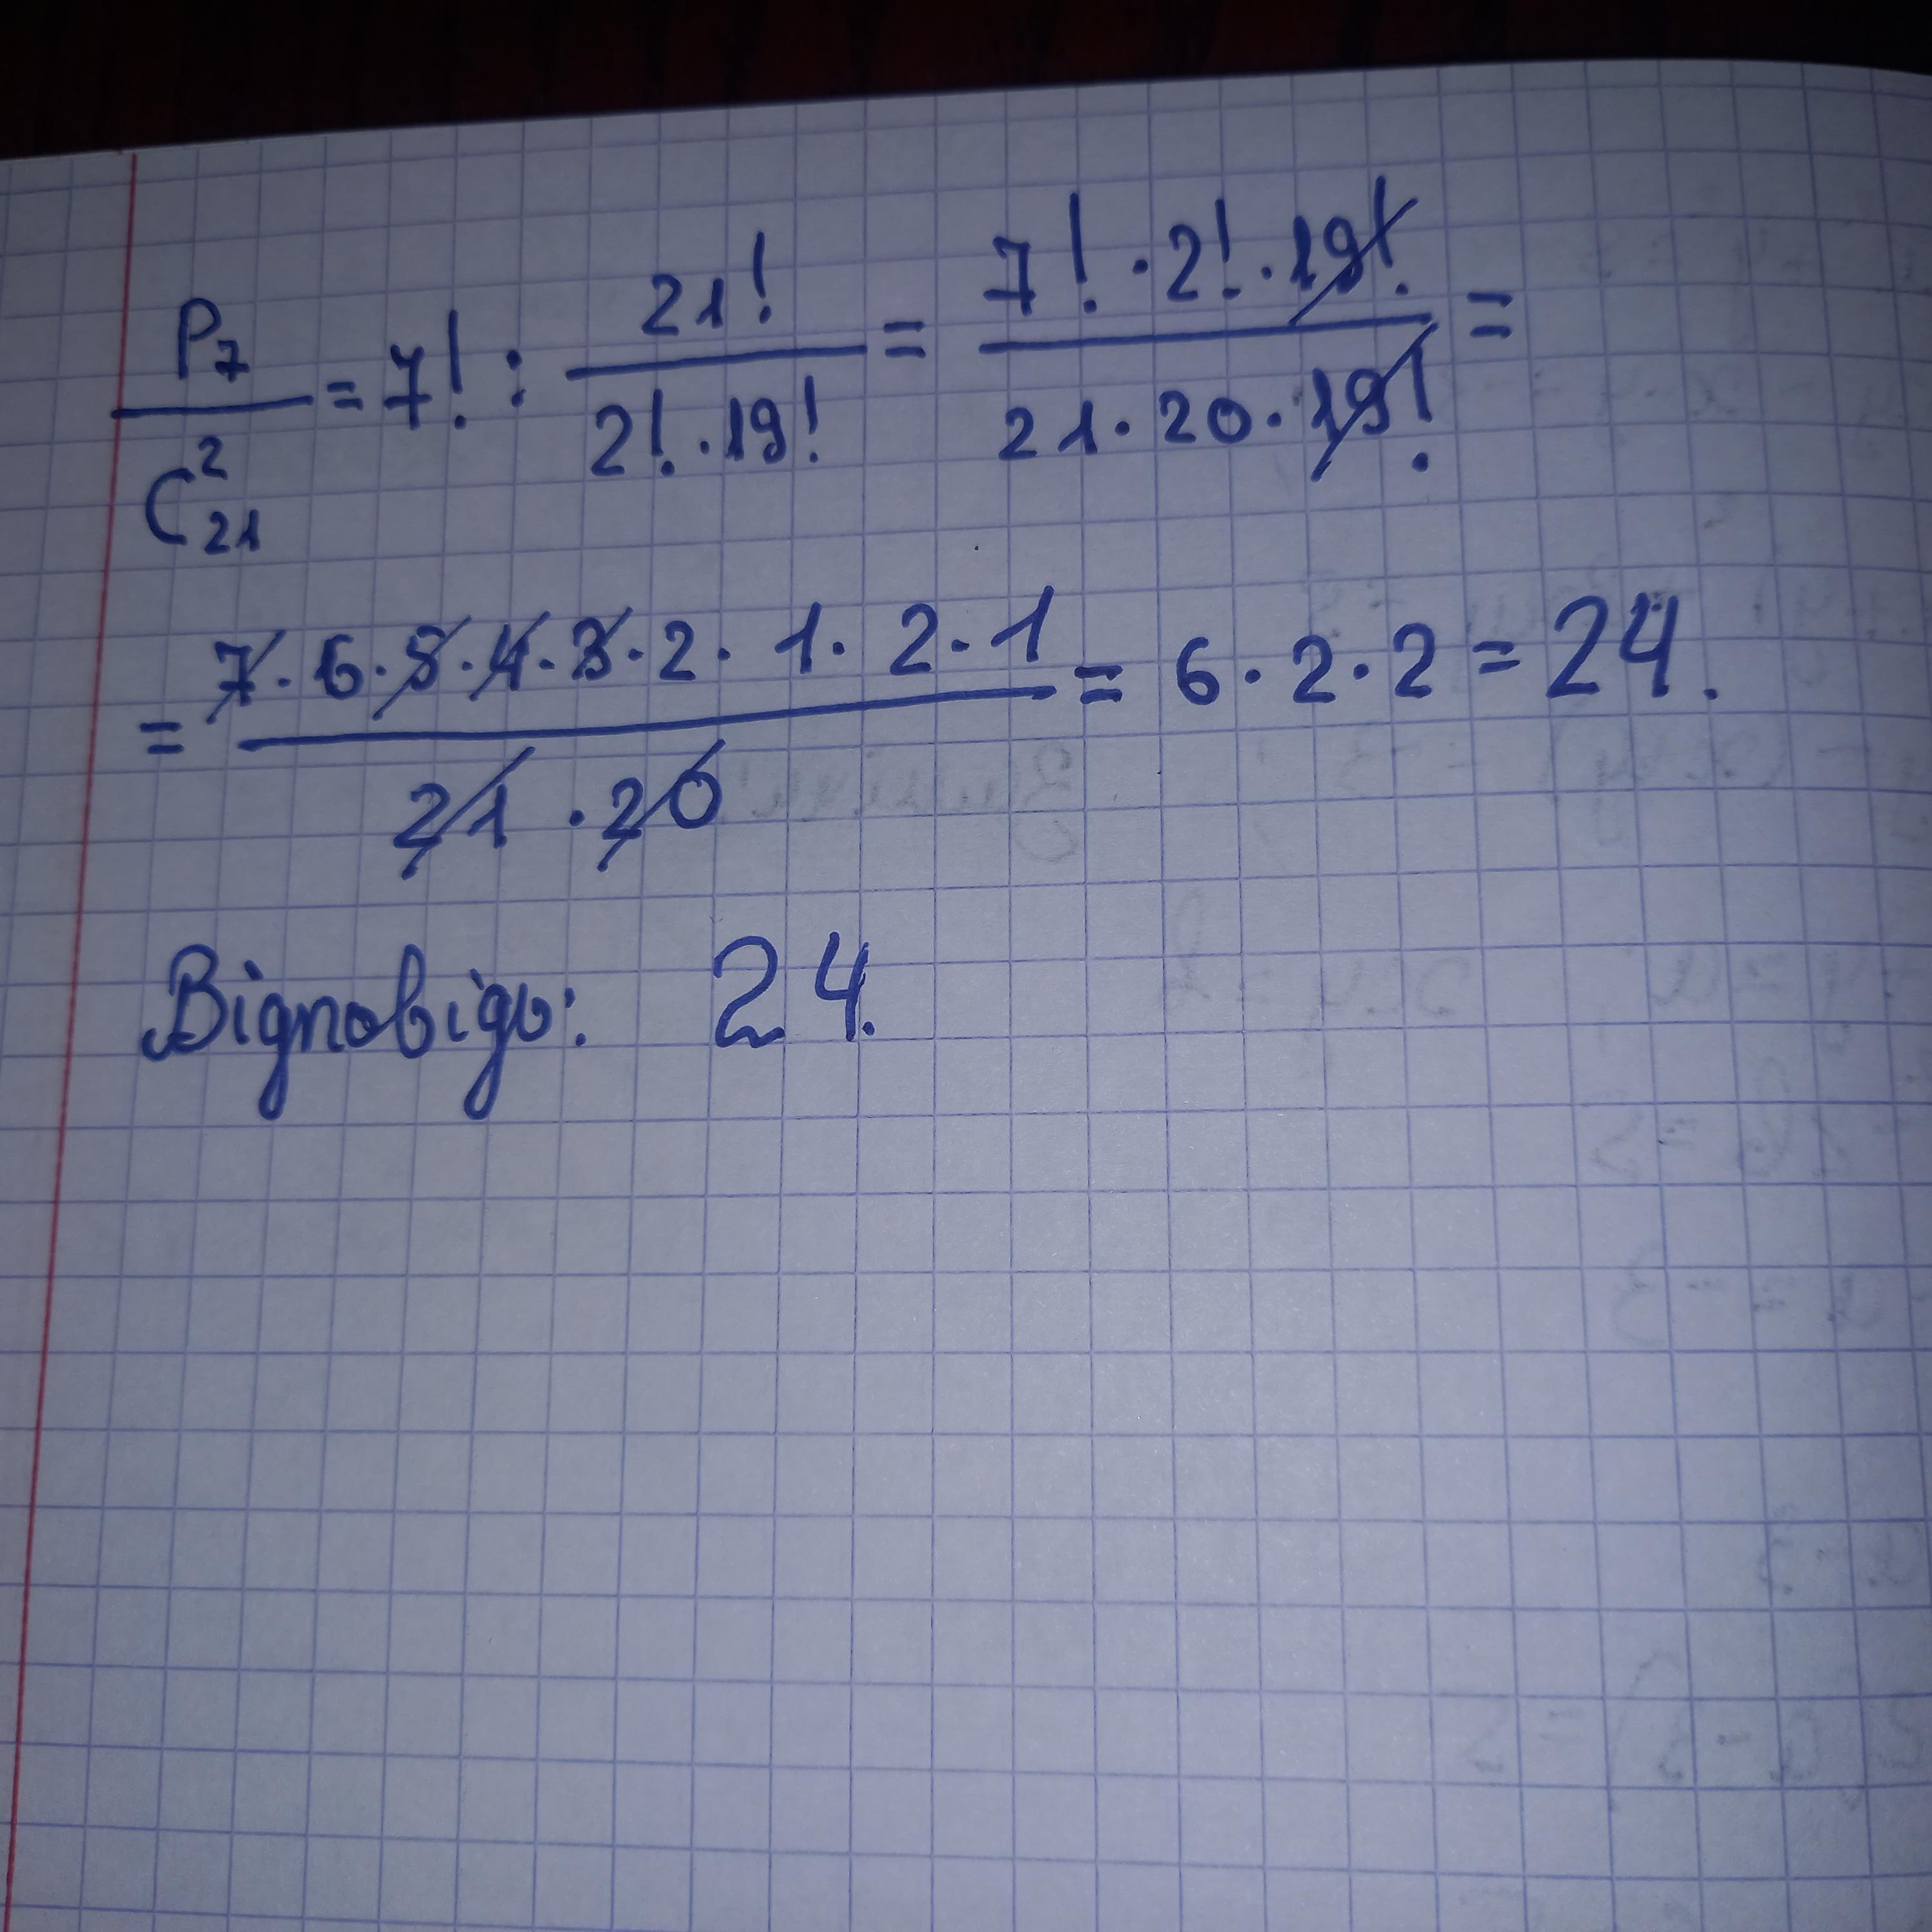 P₇/C²₂₁ = 7! : 21!/(2!·19!) = (7!·2!·19!)/(21·20·19!) =
= (7·6·5·4·3·2·1·2·1)/(21·20) = 6·2·2 = 24.
Відповідь: 24.